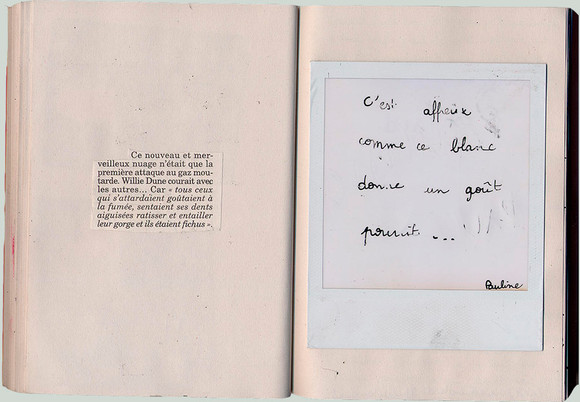 Ce nouveau et mer-
veilleux nuage n'était que la
première attaque au gaz mou-
tarde. Willie Dune courait avec
les autres... Car « tous ceux
qui s'attardaient goûtaient à
la fumée, sentaient ses dents
aiguisées ratisser et entailler
leur gorge et ils étaient fichus ».
C'est affreux
comme ce blanc
donne un goût
pourrit ...
Pauline